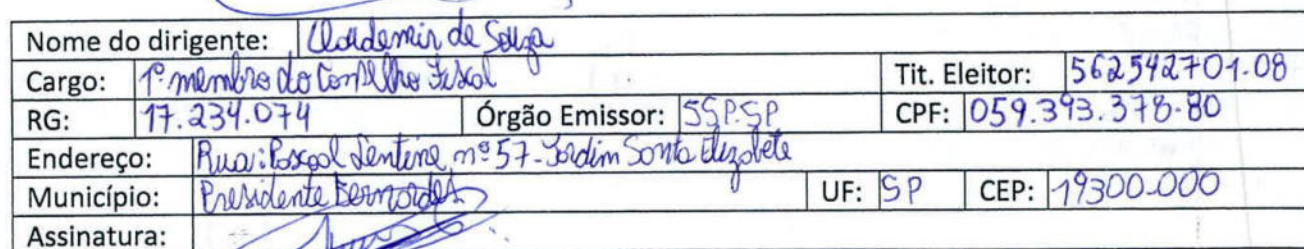 Nome do dirigente: Claudemir de Souza
Cargo: 1º membro do Conselho Fiscal Tit. Eleitor: 562542701-08
RG: 17.234.074 Órgão Emissor: SSP.SP CPF: 059.393.378-80
Endereço: Rua: Pascoal Lentine nº 57 - Jardim Santa Elizabete
Município: Presidente Bernardes UF: SP CEP: 19300-000
Assinatura: